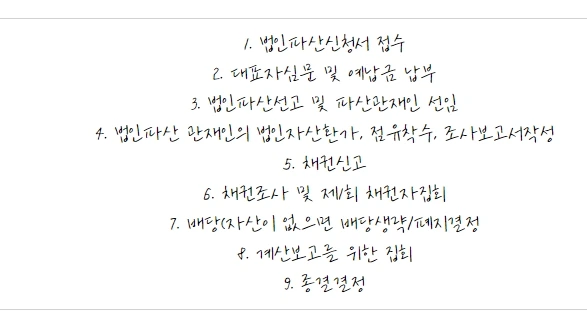 1. 법인파산신청서 접수
2. 대표자심문 및 예납금 납부
3. 법인파산선고 및 파산관재인 선임
4. 법인파산 관재인의 법인자산환가, 점유착수, 조사보고서작성
5. 채권신고
6. 채권조사 및 제1회 채권자집회
7. 배당(자산이 없으면 배당생략/폐지결정
8. 계산보고를 위한 집회
9. 종결결정